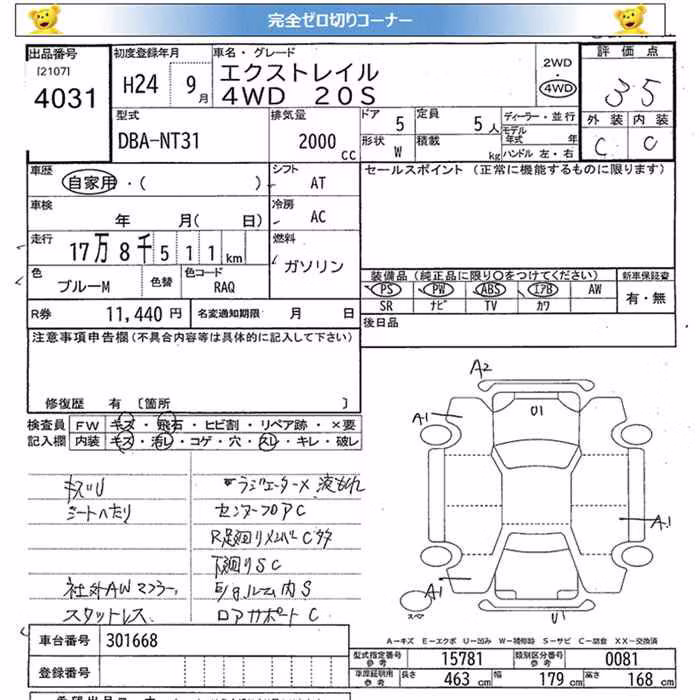 完全ゼロ切りコーナー
出品番号
[2107]
4031
初度登録年月
H24 9月
車名・グレード
エクストレイル
4WD 20S
2WD
・
4WD
評価点
3.5
外装 内装
C C
型式
DBA-NT31
排気量
2000 cc
ドア 5
定員 5人
ディーラー・並行
モデル年式 年
形状 W
積載 kg
ハンドル 左・右
車歴
自家用・( )
シフト AT
セールスポイント (正常に機能するものに限ります)
車検
年 月( 日)
冷房 AC
走行
17万8千511km
燃料
ガソリン
色
ブルーM
色替
色コード
RAQ
装備品 (純正品に限り○をつけてください) 新車保証書
PS PW ABS エアB AW
SR ナビ TV カワ
有・無
R券 11,440 円
名変通知期限 月 日
後日品
注意事項申告欄 (不具合内容等は具体的に記入して下さい)
修復歴 有 [箇所 ]
検査員 FW キズ・飛石・ヒビ割・リペア跡・×要
記入欄 内装 キズ・汚レ・コゲ・穴・スレ・キレ・破レ
キズU
シートへたり
社外AWマフラー
スタットレス
ラジエーター× 液もれ
センターフロアC
R足廻りメンバーC多
下廻りSC
E/gルーム内S
ロアサポートC
A2
A1
U1
A1
A1
スペア
U1
A－キズ E－エクボ U－凹み W－補修跡 S－サビ C－腐食 XX－交換済
車台番号 301668
登録番号
型式指定番号 参考 15781
類別区分番号 参考 0081
車庫証明用 参考 長さ 463 cm 幅 179 cm 高さ 168 cm
希望出品コーナー